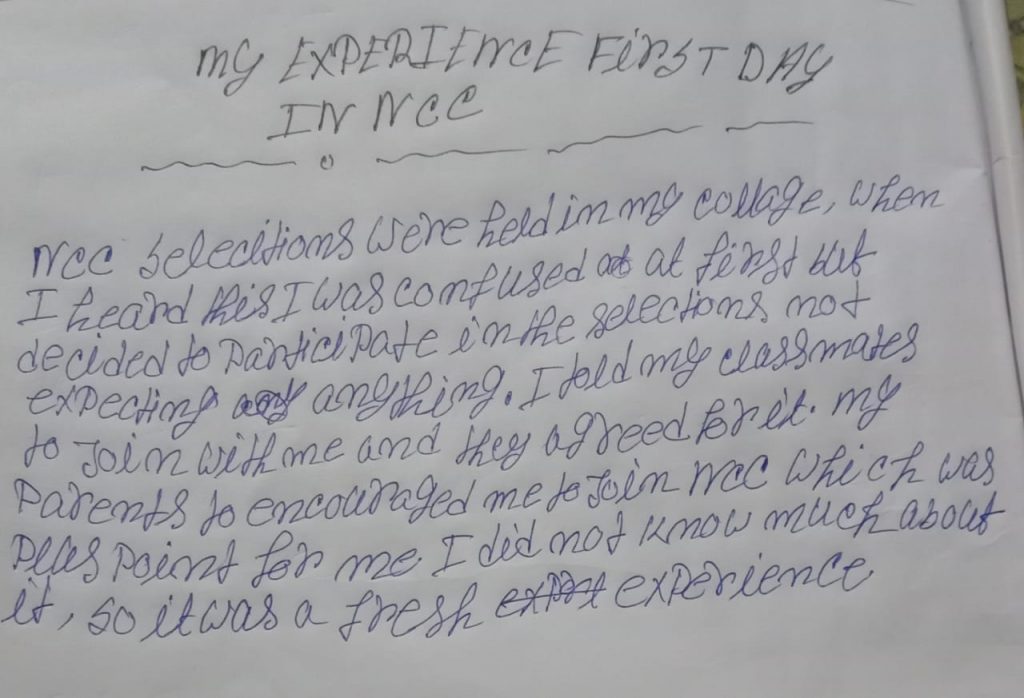 MY EXPERIENCE FIRST DAY
IN NCC
NCC Selecitions were held in my collage, when
I heard this I was confused at at first but
decided to Participate in the selections not
expecting any anything. I told my classmates
to Join with me and they agreed for it. my
Parents to encouraged me to Join NCC which was
Plus Point for me. I did not know much about
it, so it was a fresh experience